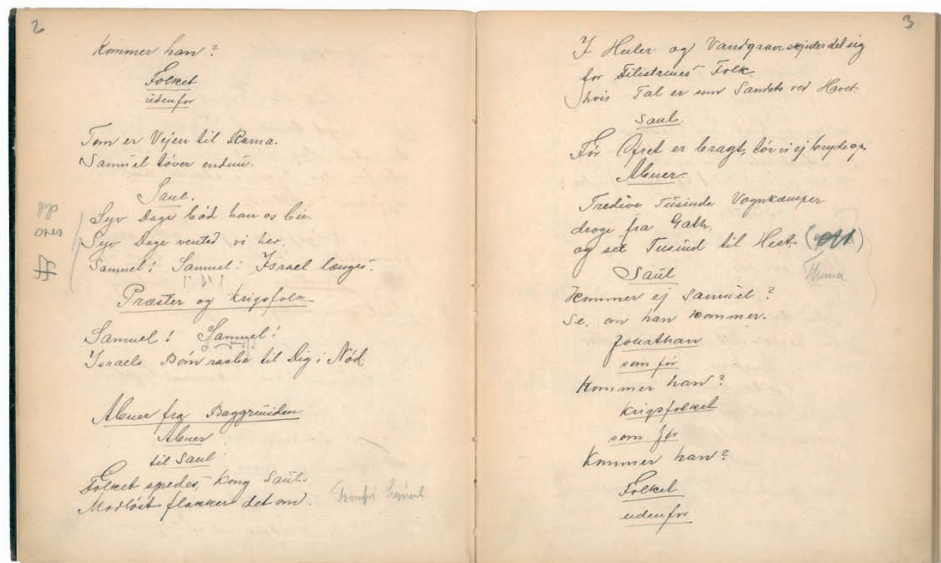 2
Kommer han?
Folket
udenfor
Tom er Vejen til Rama.
Samuel tøver endnu.
Saul.
Syv Dage bød han os bie.
Syv Dage vented vi her.
Samuel! Samuel! Israel længes.
Præster og Krigsfolk
Samuel! Samuel!
Israels Børn raabe til Dig i Nød
Abner fra Baggrunden
Abner
til Saul
Folket spredes, Kong Saul.
Modløst flakker det om.
3
I Huler og Vandgrave skjuler det sig
for Filistrenes Folk,
hvis Tal er som Sandets ved Havet.
Saul.
Før Ofret er bragt, tør vi ej bryde op
Abner.
Tredive Tusinde Vognkæmper
droge fra Gath.
og sex Tusind til Hest.
Saul
Kommer ej Samuel?
Se, om han kommer.
Jonathan
som før
Kommer han?
Krigsfolket
som før
Kommer han?
Folket
udenfor